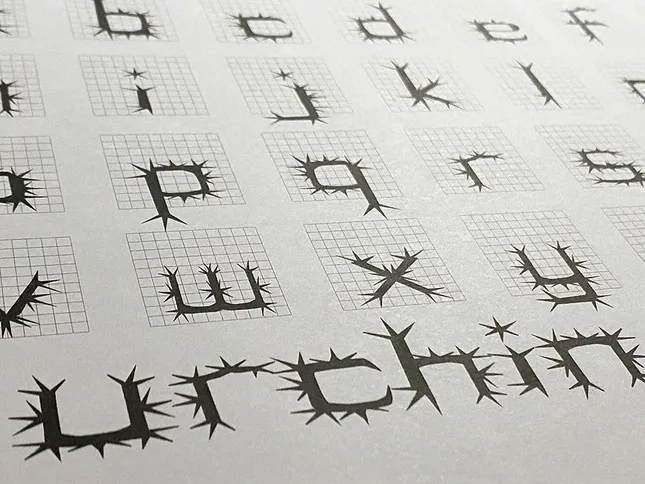 b c d e f
i j k l
p q r s
w x y
urchin